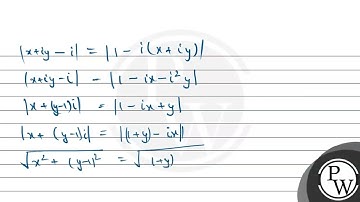 |x+iy-i| = |1-i(x+iy)|
|x+iy-i| - |1-ix-i²y|
|x+(y-1)i| = |1-ix+y|
|x+(y-1)i| = |(1+y)-ix|
√x²+(y-1)² = √(1+y)
PW